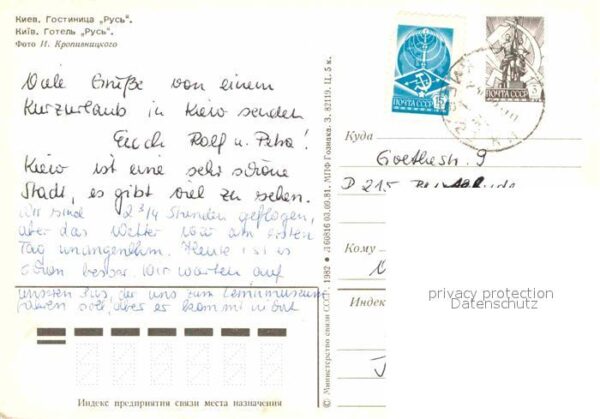 Киев. Гостиница „Русь".
Київ. Готель „Русь".
Фото И. Кропивницкого
Viele Grüße von einem
Kurzurlaub in Kiew senden
Euch Rolf u. Petra!
Kiew ist eine sehr schöne
Stadt, es gibt viel zu sehen.
Wir sind 2 3/4 Stunden geflogen,
aber das Wetter war am ersten
Tag unangenehm. Heute ist es
schon besser. Wir warten auf
unseren Bus, der uns zum Leninmuseum
fahren soll, aber er kommt nicht
© Министерство связи СССР. 1982 Л 60816 03.09.81. МПФ Гознака. З. 82119. Ц. 5 к.
ПОЧТА СССР
ПОЧТА СССР
Куда
Goethestr. 9
D 215
Кому
Индек
privacy protection
Datenschutz
Индекс предприятия связи места назначения